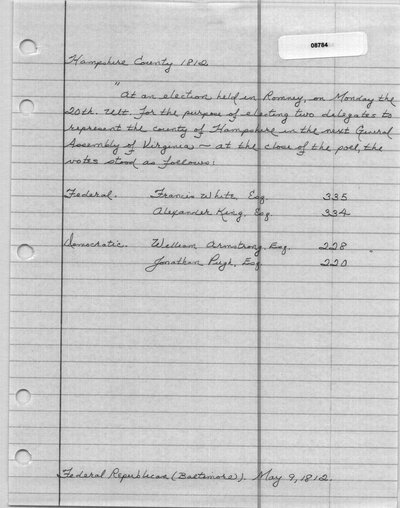 08784
Hampshire County 1812
"At an election held in Romney, on Monday the
20th. Ult. for the purpose of electing two delegates to
represent the county of Hampshire in the next General
Assembly of Virginia – at the close of the poll, the
votes stood as follows:
Federal. Francis White, Esq. 335
Alexander King, Esq 334
Democratic. William Armstrong, Esq. 228
Jonathan Pugh, Esq 220
Federal Republican (Baltimore). May 9, 1812.